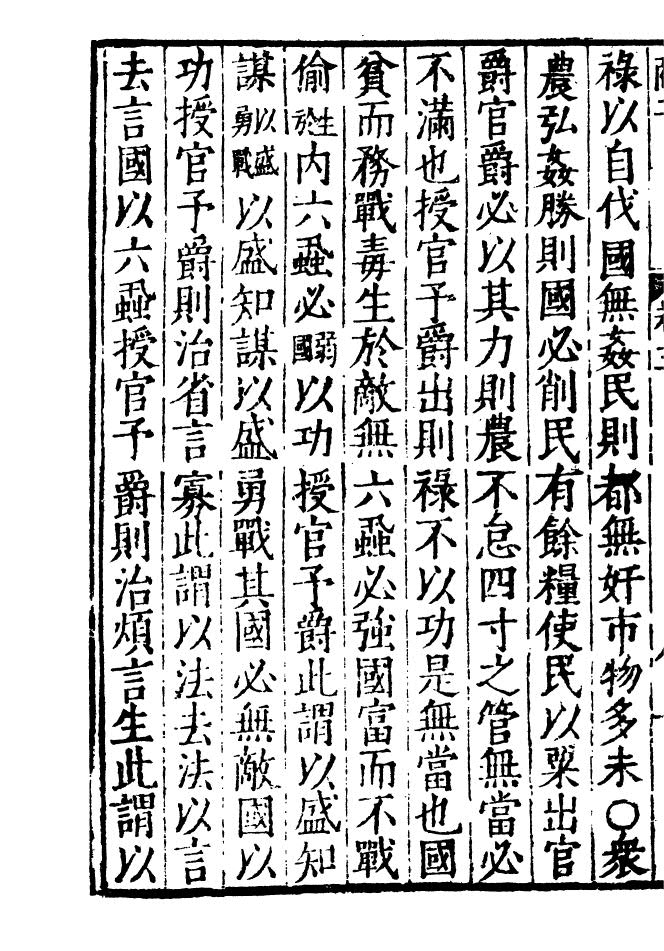 祿以自伐國無姦民則都無奸市物多末○衆
農弘姦勝則國必削民有餘糧使民以粟出官
爵官爵必以其力則農不怠四寸之管無當必
不滿也授官予爵出則祿不以功是無當也國
貧而務戰毒生於敵無六蝨必強國富而不戰
偷生於內六蝨必弱國以功授官予爵此謂以盛知
謀以盛勇戰以盛知謀以盛勇戰其國必無敵國以
功授官予爵則治省言寡此謂以法去法以言
去言國以六蝨授官予爵則治煩言生此謂以